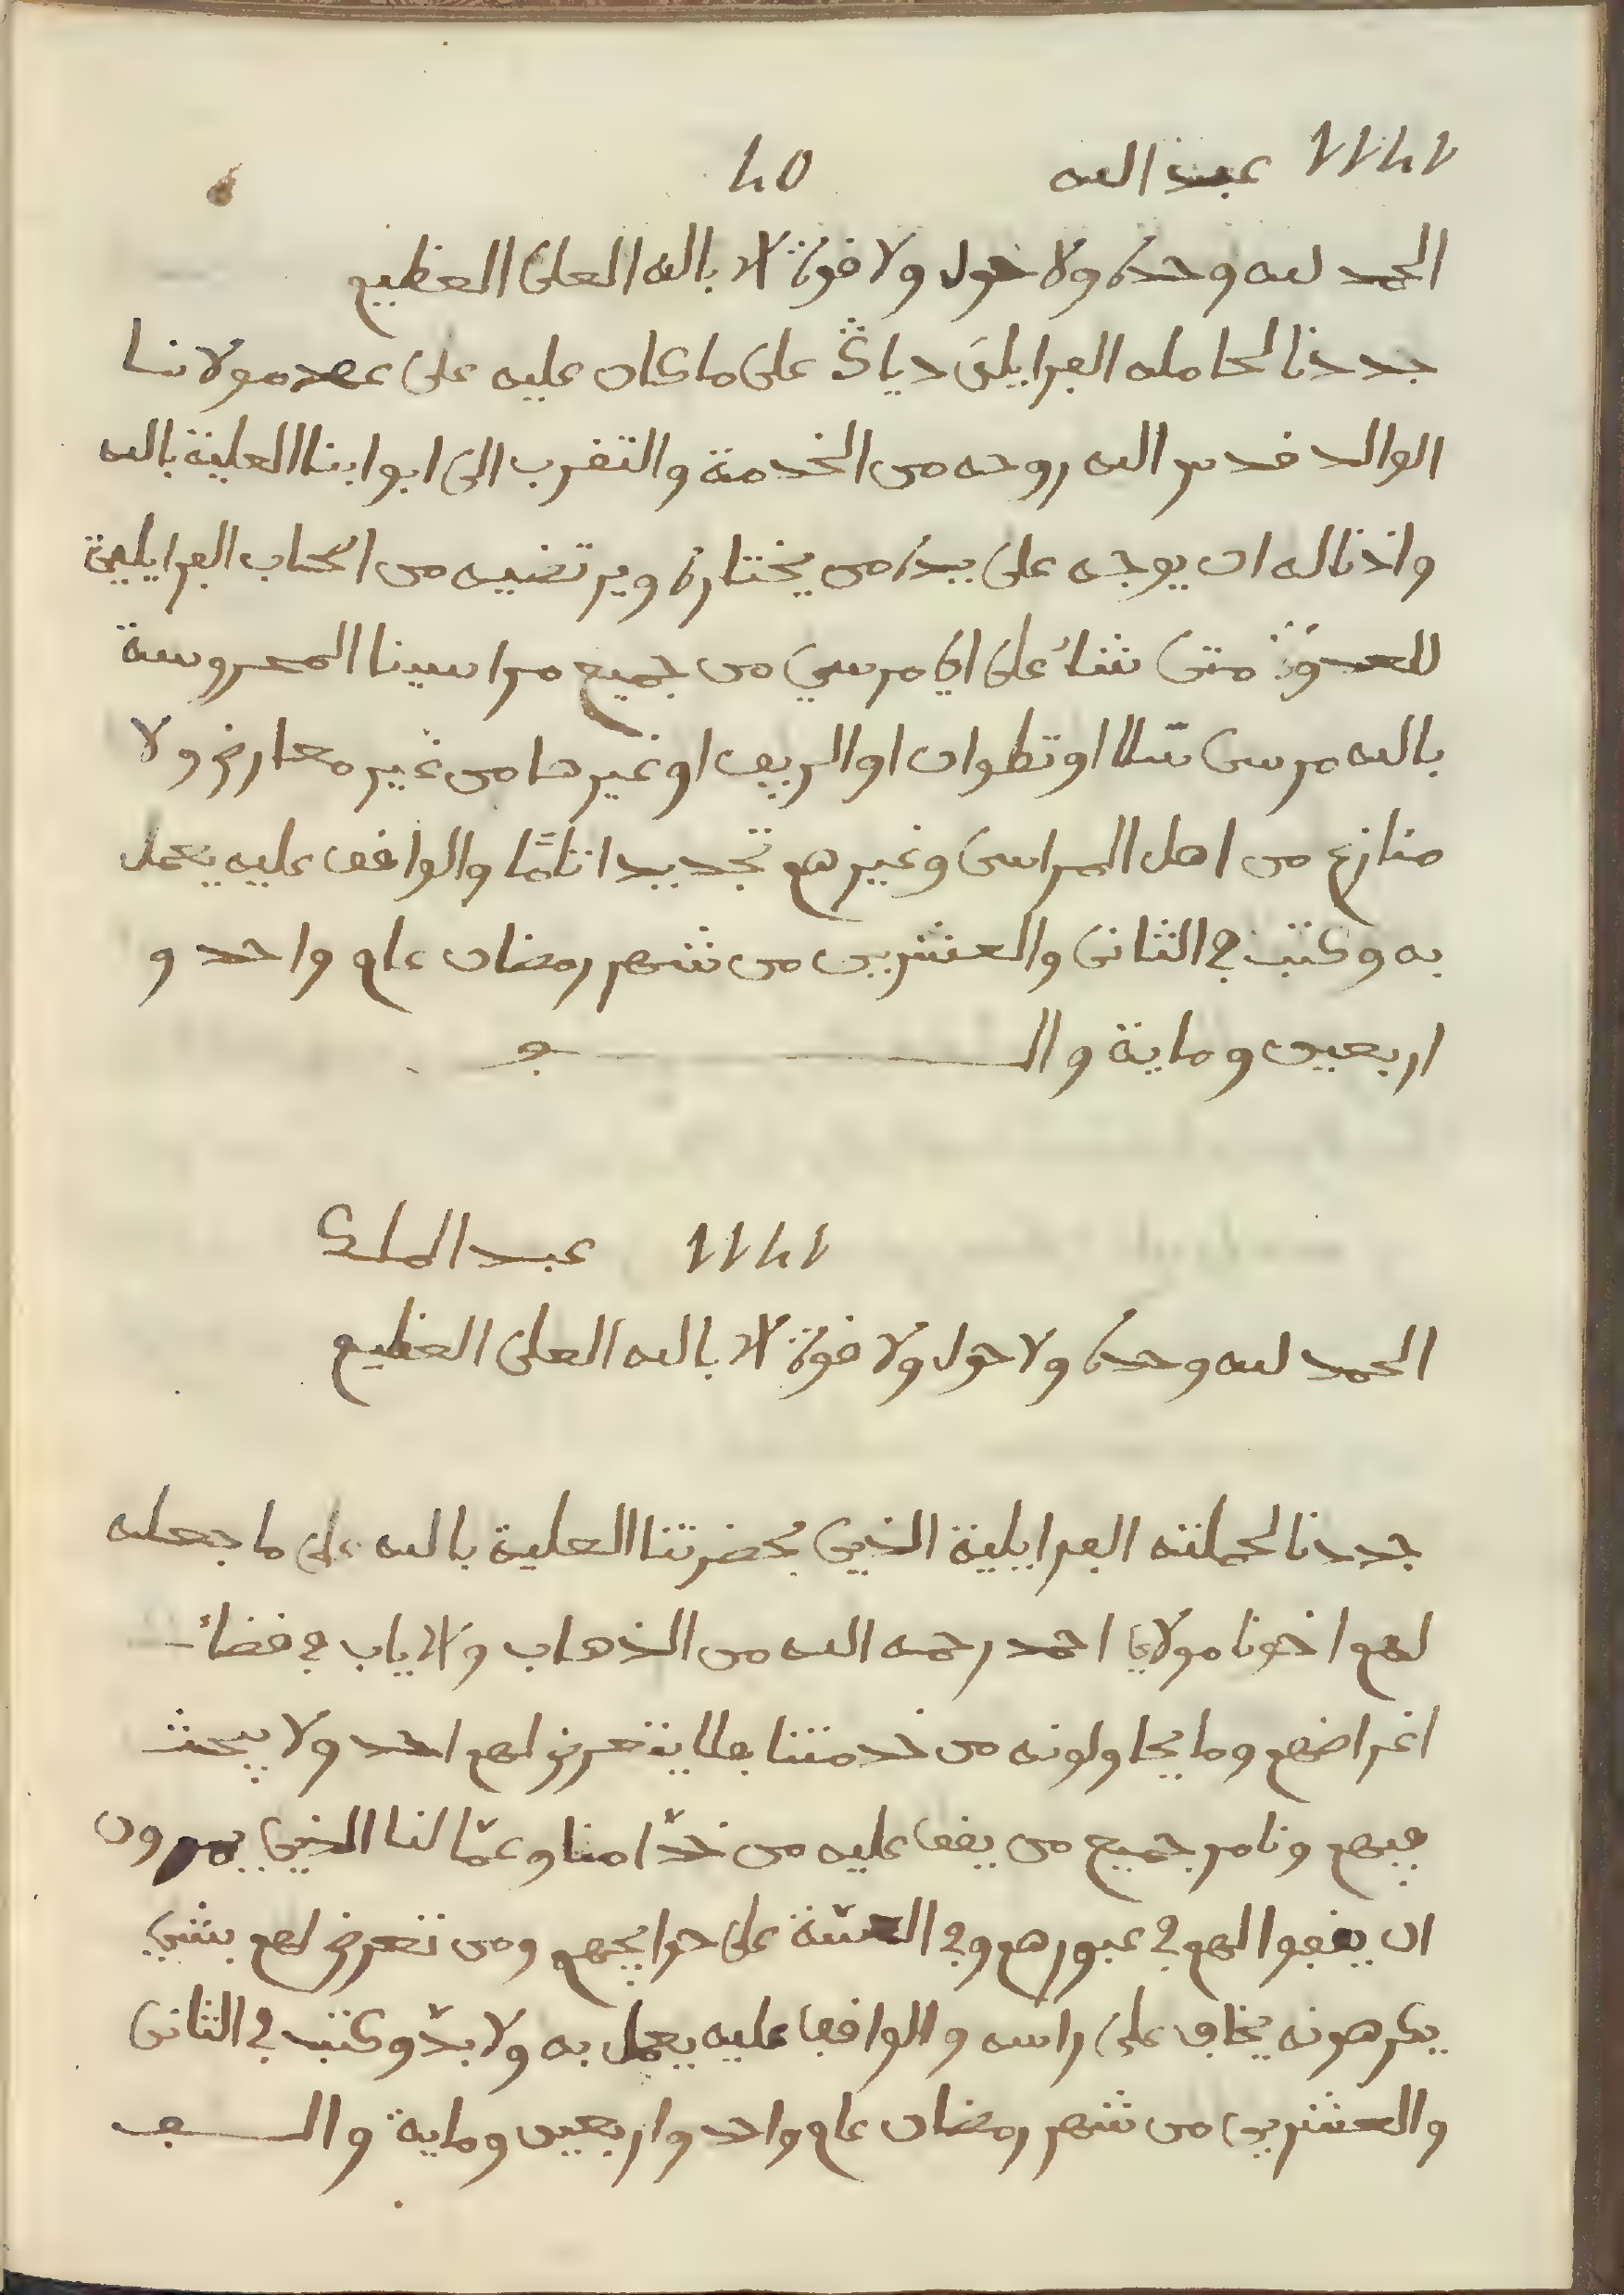 1141 عبد الله 40
الحمد لله وحده ولا حول ولا قوة الا بالله العلى العظيم
جددنا لحامله الفرايلى دياڭ على ما كان عليه على عهد مولانا
الوالد قدس الله روحه من الخدمة والتقرب الى ابوابنا العلية بالله
واذنا له ان يوجه على يده من يختاره ويرتضيه من اصحاب الفرايلية
للعدوة متى شاء على اي مرسي من جميع مراسينا المحروسة
بالله مرسى سلا او تطوان او الريف او غيرها من غير معارض ولا
منازع من اهل المراسى وغيرهم تجديدا تامًّا والواقف عليه يعمل
به وكتب في الثانى والعشرين من شهر رمضان عام واحد و
اربعين وماية والف
1141 عبد الملك
الحمد لله وحده ولا حول ولا قوة الا بالله العلى العظيم
جددنا لحملته الفرايلية الذين بحضرتنا العلية بالله على ما جعله
لهم اخونا مولاي احمد رحمه الله من الذهاب والاياب في قضاء
اغراضهم وما يحاولونه من خدمتنا فلا يتعرض لهم احد ولا يبحث
فيهم ونامر جميع من يقف عليه من خدّامنا وعمّالنا الذين يمرون
ان يقفوا لهم في عبورهم وفي العسّة على حوايجهم ومن تعرض لهم بشي
يكرهونه يخاف على راسه والواقف عليه يعمل به ولا بدّ وكتب في الثانى
والعشرين من شهر رمضان عام واحد واربعين وماية والف